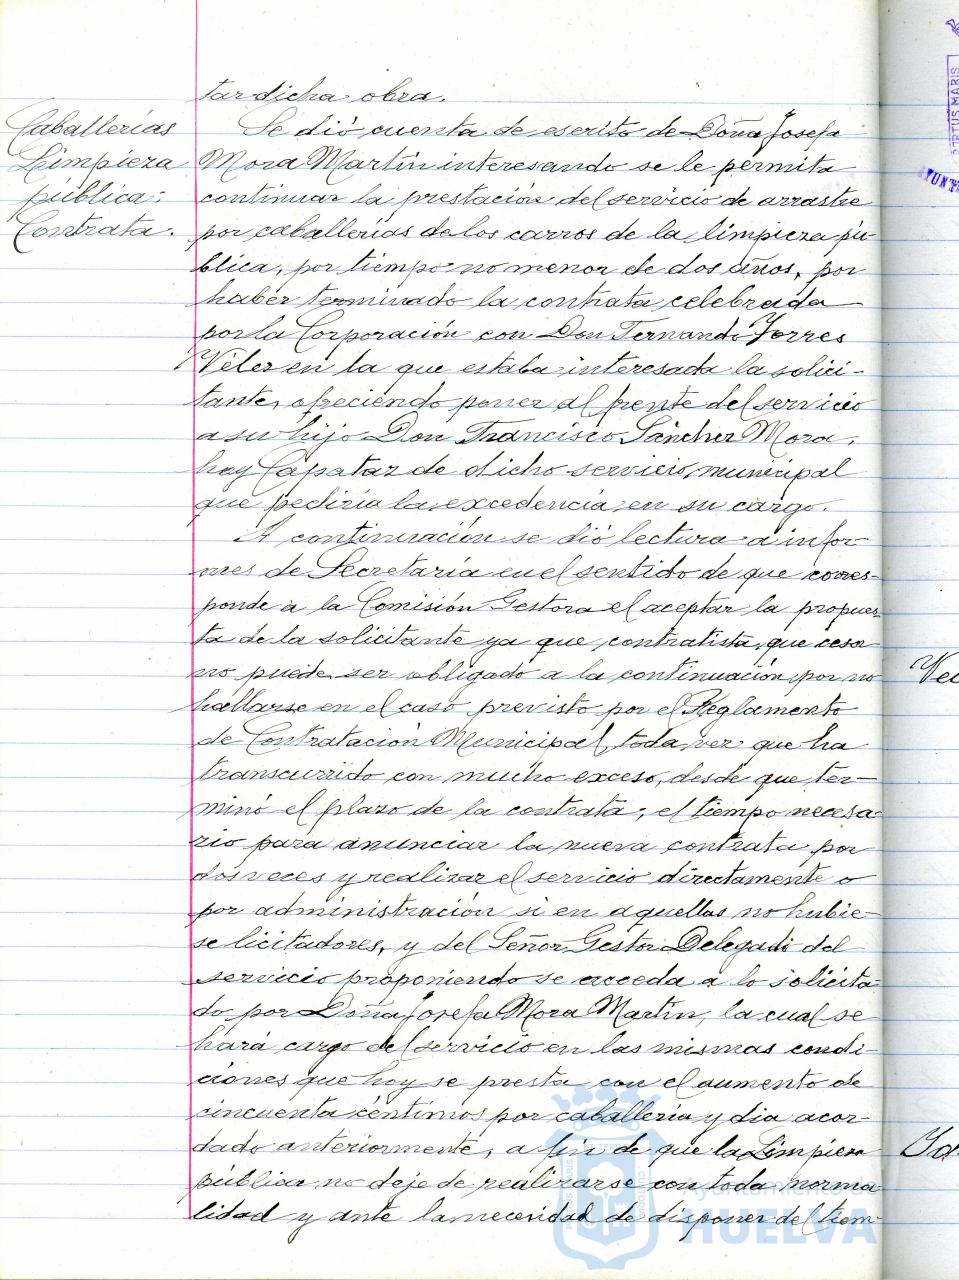 tar dicha obra.
Caballerías
Limpieza
pública:
Contrata.
Se dió cuenta de escrito de Doña Josefa
Mora Martín interesando se le permita
continuar la prestación del servicio de arrastre
por caballerías de los carros de la limpieza pú-
blica, por tiempo no menor de dos años, por
haber terminado la contrata celebrada
por la Corporación con Don Fernando Torres
Vélez en la que estaba interesada la solici-
tante, ofreciendo poner al frente del servicio
a su hijo Don Francisco Sánchez Mora,
hoy Capataz de dicho servicio municipal
que pediría la excedencia en su cargo.
A continuación se dió lectura a infor-
mes de Secretaría en el sentido de que corres-
ponde a la Comisión Gestora el aceptar la propues-
ta de la solicitante ya que contratista que cesa
no puede ser obligado a la continuación por no
hallarse en el caso previsto por el Reglamento
de Contratación Municipal, toda vez que ha
transcurrido con mucho exceso, desde que ter-
minó el plazo de la contrata, el tiempo necesa-
rio para anunciar la nueva contrata por
dos veces y realizar el servicio directamente o
por administración si en aquellas no hubie-
se licitadores, y del Señor Gestor Delegado del
servicio proponiendo se acceda a lo solicita-
do por Doña Josefa Mora Martín, la cual se
hará cargo del servicio en las mismas condi-
ciones que hoy se presta con el aumento de
cincuenta céntimos por caballería y dia acor-
dado anteriormente, a fin de que la Limpieza
pública no deje de realizarse con toda norma-
lidad y ante la necesidad de disponer del tiem-
Ayuntamiento de
HUELVA
PORTUS MARIS